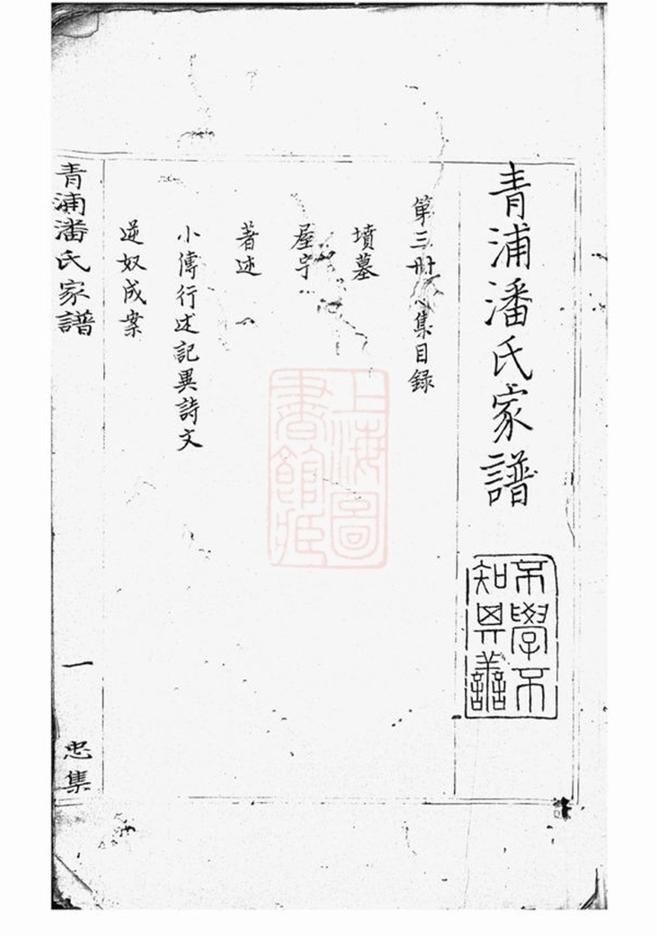 青浦潘氏家譜
不學不
知其善
第三冊集目錄
墳墓
屋宇
著述
小傳行述記異詩文
逆奴成案
上海圖
書館藏
青浦潘氏家譜 一 忠集